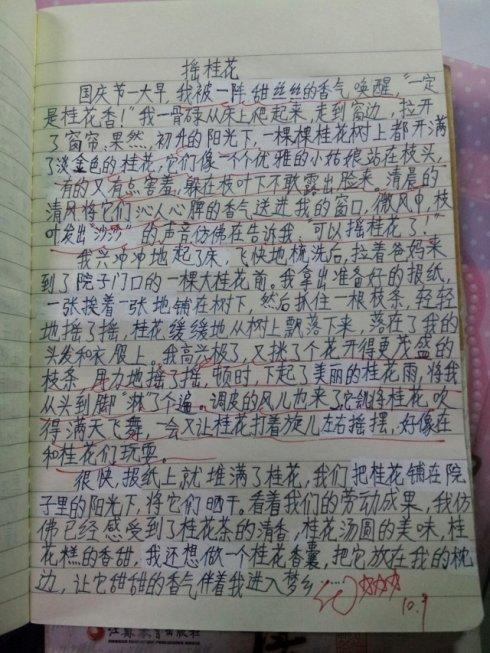 摇桂花
国庆节一大早,我被一阵甜丝丝的香气唤醒,“一定
是桂花香!”我一骨碌从床上爬起来,走到窗边,拉开
了窗帘。果然,初升的阳光下,一棵棵桂花树上都开满
了淡金色的桂花,它们像一个个优雅的小姑娘站在枝头,
有的又有点害羞,躲在枝叶下不敢露出脸来。清晨的
清风将它们沁人心脾的香气送进我的窗口,微风中,枝
叶发出“沙沙”的声音仿佛在告诉我,可以摇桂花了。”
我兴冲冲地起了床,飞快地梳洗后,拉着爸妈来
到了院子门口的一棵大桂花前。我拿出准备好的报纸,
一张挨着一张地铺在树下,然后抓住一根枝条,轻轻
地摇了摇,桂花缓缓地从树上飘落下来,落在了我的
头发和衣服上。我高兴极了,又挑了个花开得更茂盛的
枝条,用力地摇了摇,顿时,下起了美丽的桂花雨,将我
从头到脚“淋”了个遍。调皮的风儿也来了,它们将桂花吹
得满天飞舞,一会又让桂花打着旋儿左右摇摆,好像在
和桂花们玩耍。
很快,报纸上就堆满了桂花,我们把桂花铺在院
子里的阳光下,将它们晒干。看着我们的劳动成果,我仿
佛已经感受到了桂花茶的清香,桂花汤圆的美味,桂
花糕的香甜,我还想做一个桂花香囊,把它放在我的枕
边,让它甜甜的香气伴着我进入梦乡……
10.9
江苏教育出版社